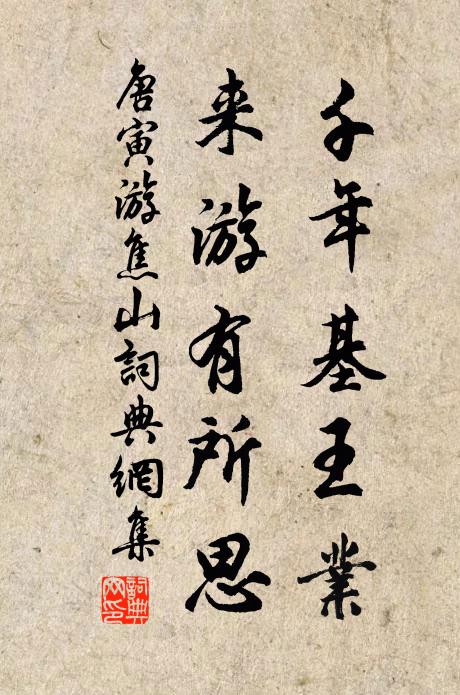 千年基王業
来游有所思
唐寅游焦山詞典網集
詞典网印